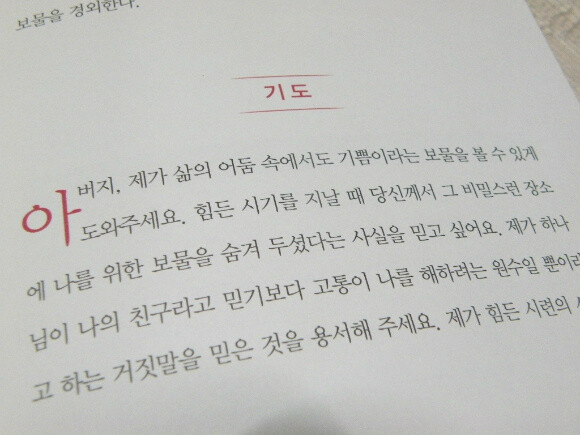 보물을 경외한다.
기도
아버지, 제가 삶의 어둠 속에서도 기쁨이라는 보물을 볼 수 있게
도와주세요. 힘든 시기를 지날 때 당신께서 그 비밀스런 장소
에 나를 위한 보물을 숨겨 두셨다는 사실을 믿고 싶어요. 제가 하나
님이 나의 친구라고 믿기보다 고통이 나를 해하려는 원수일 뿐이라
고 하는 거짓말을 믿은 것을 용서해 주세요. 제가 힘든 시련의